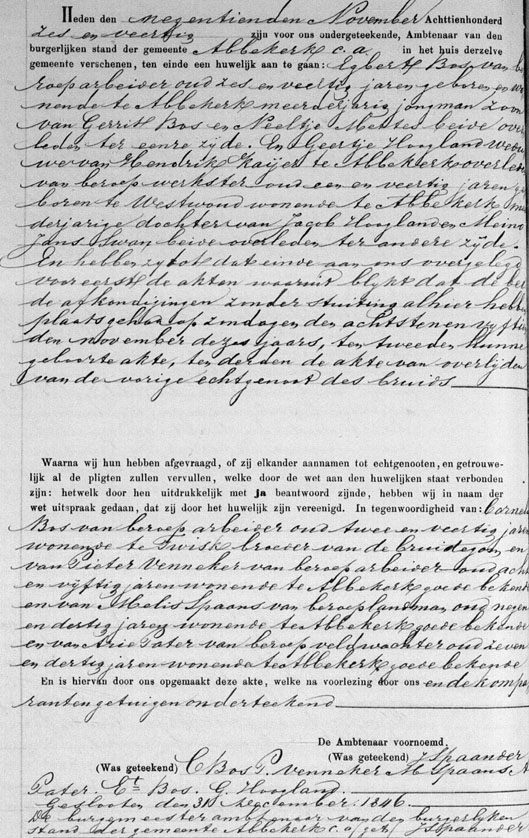 Heden den negentienden November Achttienhonderd
zes en veertig zijn voor ons ondergeteekende, Ambtenaar van den
burgerlijken stand der gemeente Abbekerk c.a. in het huis derzelve
gemeente verschenen, ten einde een huwelijk aan te gaan: Egbert Bos, van be
roep arbeider oud zes en veertig jaren geboren en wo
nende te Abbekerk meerderjarig jongman zoon
van Gerrit Bos en Neeltje Mentes beide over
leden ter eenre zijde. En Geertje Hoogland wedu
we van Hendrik Kaijer te Abbekerk overleden
van beroep werkster oud een en veertig jaren ge
boren te Westwoud wonende te Abbekerk mee
derjarige dochter van Jacob Hoogland en Meino
Jans Swan beide overleden ter andere zijde.
En hebben zij tot dat einde aan ons overgelegd
voor eerst de akten waaruit blykt dat de bei
de afkondijingen zonder stuiting alhier hebben
plaats gehad op zondagen den achtsten en vyftien
den november dezes jaars, ten tweeden hunne
geboorte akte, ten derden de akte van overlijden
van de vorige echtgenoot des bruids
Waarna wij hun hebben afgevraagd, of zij elkander aannamen tot echtgenooten, en getrouwe-
lijk al de pligten zullen vervullen, welke door de wet aan den huwelijken staat verbonden
zijn: hetwelk door hen uitdrukkelijk met ja beantwoord zijnde, hebben wij in naam der
wet uitspraak gedaan, dat zij door het huwelijk zijn vereenigd. In tegenwoordigheid van: Corneli
Bos van beroep arbeider oud twee en veertig jaren
wonende te Twisk broeder van de bruidegom en
van Pieter Venneker van beroep arbeider oud acht
en vijftig jaren wonende te Abbekerk goede bekende
en van Melis Spaans van beroep landman oud negen
en dertig jaren wonende te Abbekerk goede bekende
en van Arie Pater van beroep veldwachter oud zeven
en dertig jaren wonende te Abbekerk goede bekende
En is hiervan door ons opgemaakt deze akte, welke na voorlezing door ons en de kompa
ranten getuigen onderteekend
De Ambtenaar voornoemd.
(Was geteekend) J Spaander
(Was geteekend) C Bos P. Venneker M Spaans A
Pater. Et Bos. G. Hoogland.
Gesloten den 31 December 1846.
De burgemeester ambtenaar van den burgerlyken
stand der gemeente Abbekerk c.a. get. J. Spaander